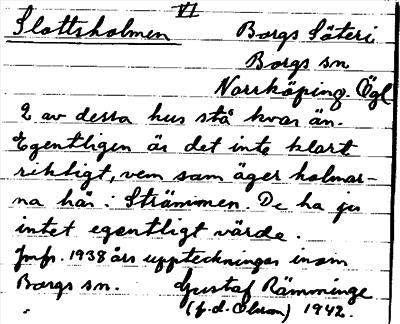 VI
Slottsholmen Borgs Säteri
Borgs sn
Norrköping. Ögl
2 av dessa hus stå kvar än.
Egentligen är det inte klart
riktigt, vem som äger holmar-
na här i Strömmen. De ha ju
intet egentligt värde.
Jmfr. 1938 års uppteckningar inom
Borgs sn. Gustaf Rämminge
(f.d. Olsson) 1942.